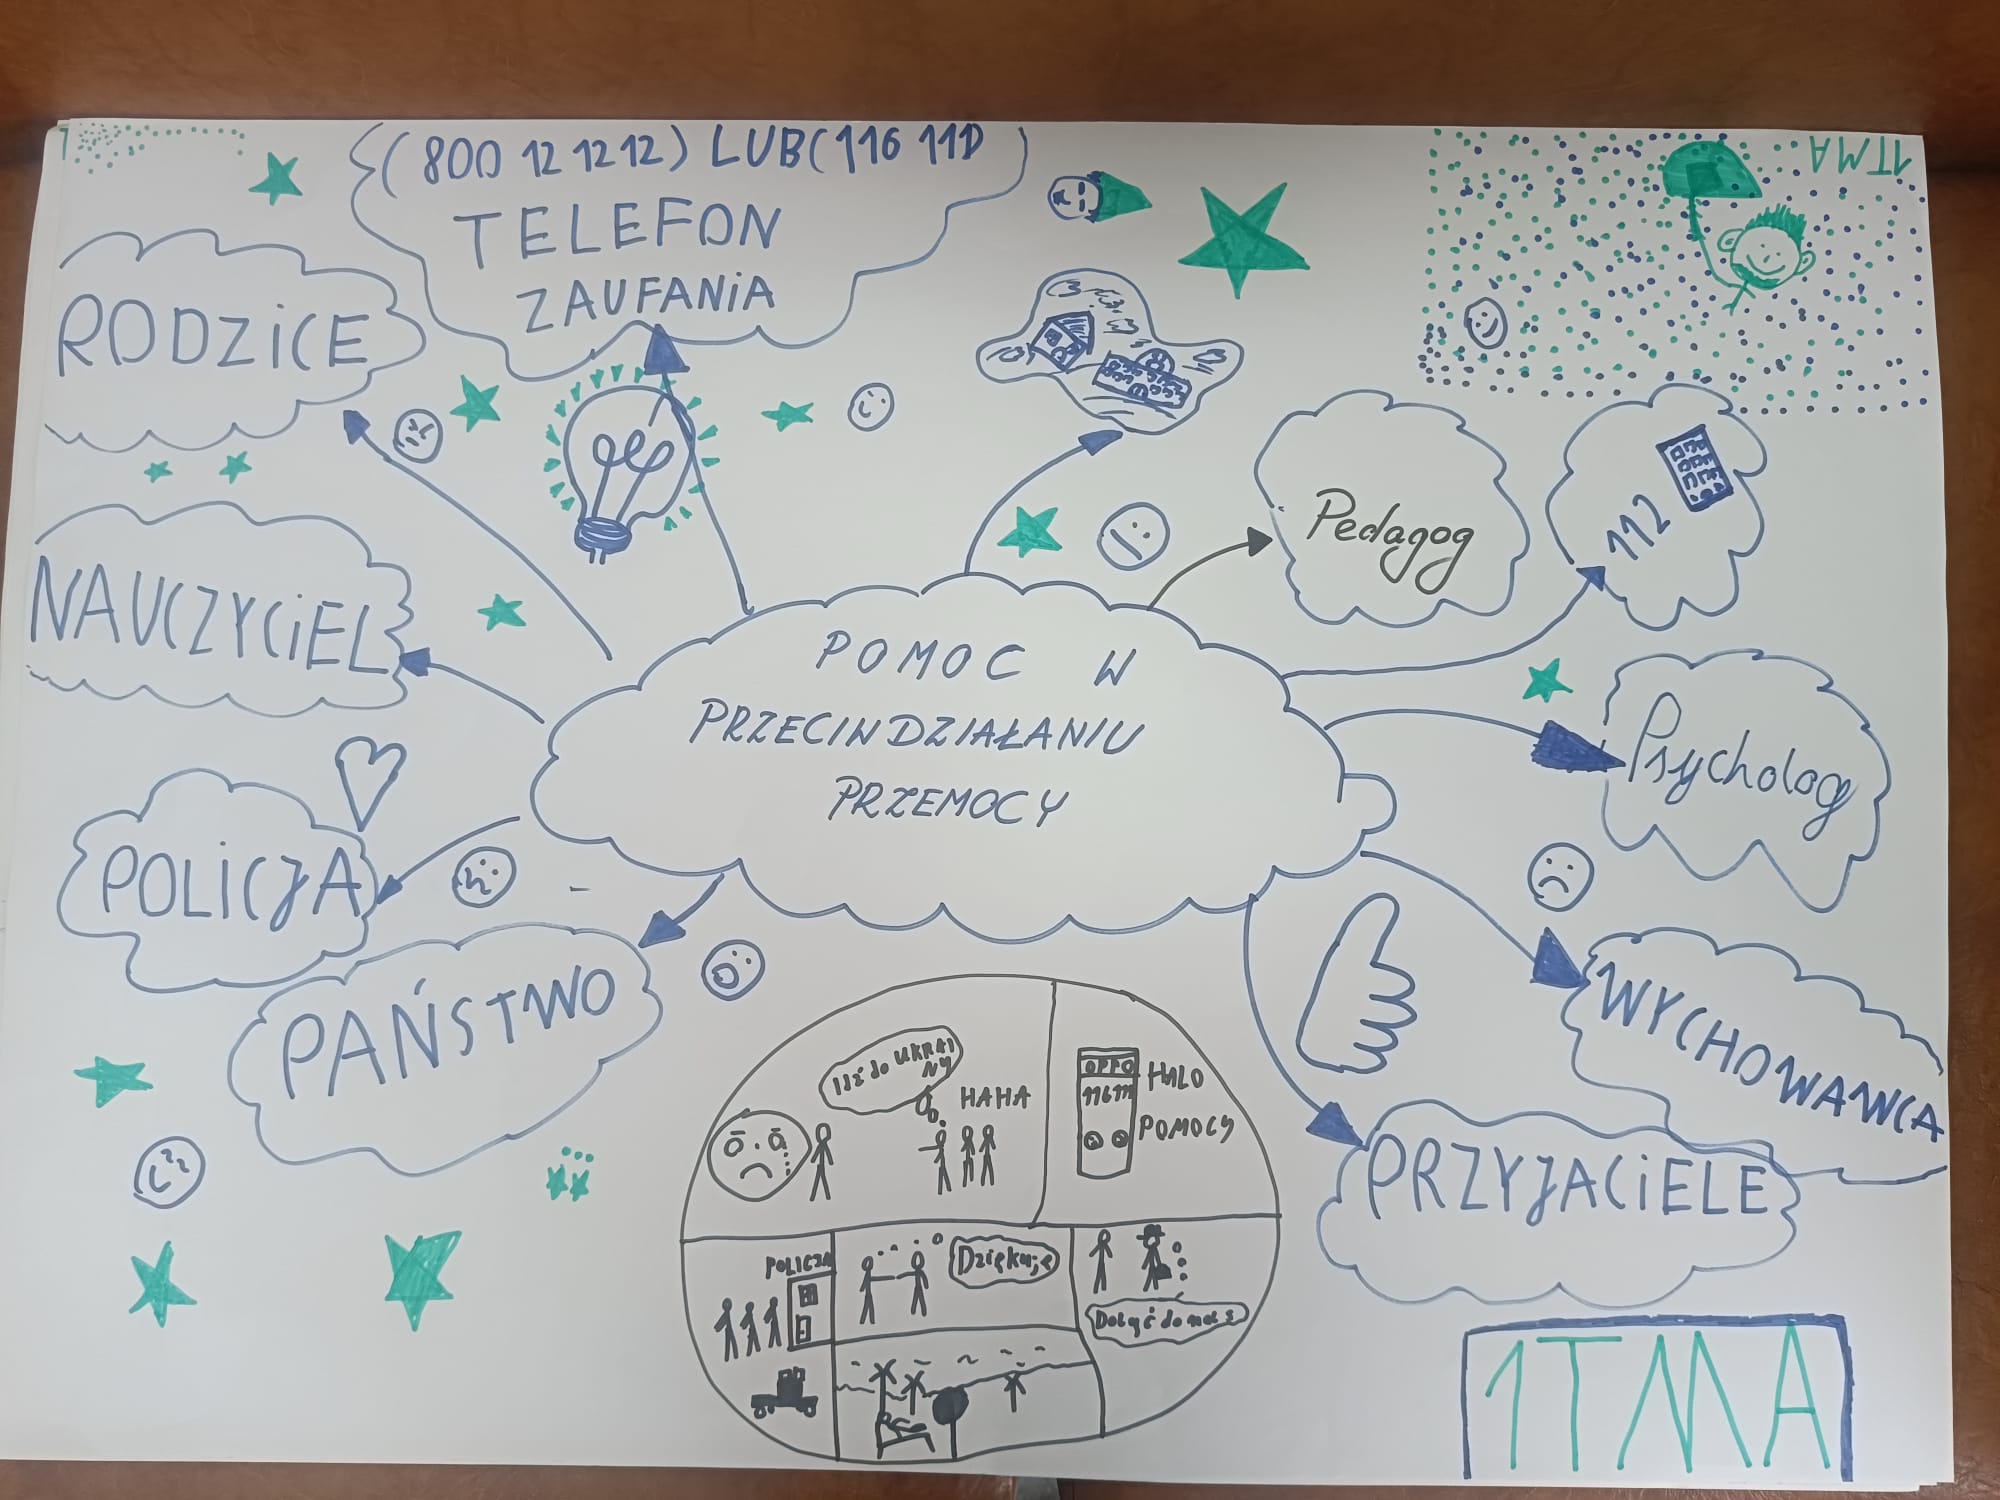 (800 12 12 12) LUB (116 111)
TELEFON
ZAUFANiA
1TMA
RODZiCE
Pedagog
112
NAUCZYCiEL
POMOC W
PRZECIWDZIAŁANIU
PRZEMOCY
Psycholog
POLiCJA
PAŃSTWO
WYCHOWAWCA
PRZYJACiELE
Idź do UKRAI
NY
HAHA
OPPO
116111
HALO
POMOCY
POLICJA
Dziękuję
Dołąć do nas
1TMA